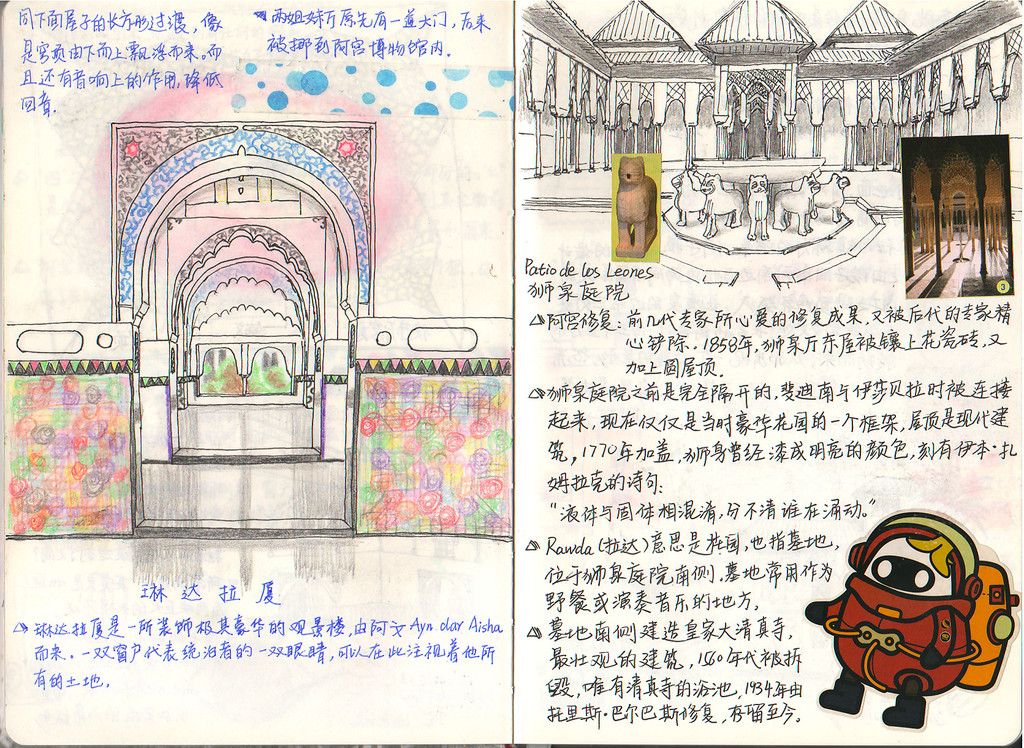 向下面层子的长方形过渡，像
是穹顶由下而上飘浮而来。而
且还有音响上的作用，降低
回音。
两姐妹厅原先有一道大门，后来
被挪到阿宫博物馆内。
琳达拉厦
琳达拉厦是一所装饰极其豪华的观景楼，由阿文Ayn dar Aisha
而来。一双窗户代表统治者的一双眼睛，可以在此注视着他所
有的土地。
3
Patio de los Leones
狮泉庭院
阿宫修复：前几代专家所心爱的修复成果，又被后代的专家精
心铲除。1858年，狮泉厅东屋被镶上花瓷砖，又
加上圆屋顶。
狮泉庭院之前是完全隔开的，斐迪南与伊莎贝拉时被连接
起来，现在仅仅是当时豪华花园的一个框架，屋顶是现代建
筑，1770年加盖，狮身曾经漆成明亮的颜色，刻有伊本·扎
姆拉克的诗句：
“液体与固体相混淆，分不清谁在涌动。”
Rawda（拉达）意思是花园，也指墓地，
位于狮泉庭院南侧，墓地常用作为
野餐或演奏音乐的地方，
墓地南侧建造皇家大清真寺，
最壮观的建筑，1560年代被拆
毁，唯有清真寺的浴池，1934年由
托里斯·巴尔巴斯修复，存留至今。